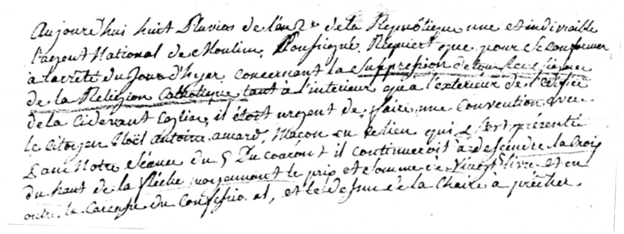 Aujourd'hui huit Pluvios de l'an 2e de la Republique une et indivisible
l'agent National de Moulin, Soussigné, Requiert que pour se conformer
à l'arrêté du Jour d'hyer, concernant la Suppression de tous les signes
de la Religion Catholique tant à l'interieur qu'a l'exterieur de l'edifice
de la cidevant Eglise, il étoit urgent de faire une Convention avec
le citoyen Noël antoine amard, Macon en ce lieu qui s'est présenté
dans Notre Séance du 5 Du courant il continueroit à descendre la Croix
du haut de la flèche moyennant le prix et somme de Vingt livre et en
outre la Carcasse du Confessional, et le dessus de la Chaire à prêcher.